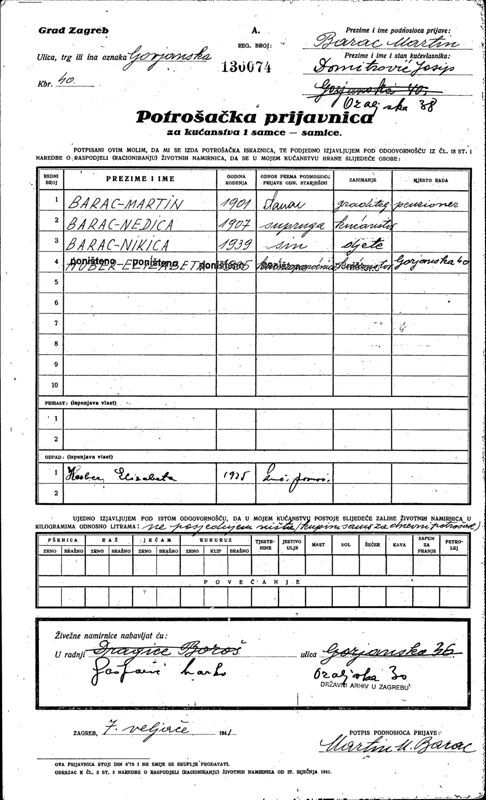 Grad Zagreb
Ulica, trg ili ina oznaka Gorjanska
Kbr. 40.
A.
REG. BROJ:
136074
Prezime i ime podnosioca prijave:
Barac Martin
Prezime i ime i stan kućevlasnika:
Domitrović Josip
Gorjanska 40.
Ozaljska 38
Potrošačka prijavnica
za kućanstva i samce — samice.
POTPISANI OVIM MOLIM, DA MI SE IZDA POTROŠAČKA ISKAZNICA, TE PODJEDNO IZJAVLJUJEM POD ODGOVORNOŠĆU IZ ČL. 18 ST. 1
NAREDBE O RASPODJELI (RACIONIRANJU) ŽIVOTNIH NAMIRNICA, DA SE U MOJEM KUĆANSTVU HRANE SLIJEDEĆE OSOBE:
REDNI BROJ PREZIME I IME GODINA ROĐENJA ODNOS PREMA PODNOSIOCU PRIJAVE ODN. STARJEŠINI ZANIMANJE MJESTO RADA
1 BARAC-MARTIN 1901 graditelj pensioner
2 BARAC-NEDICA 1907 supruga
3 BARAC-NIKICA 1939 sin dijete
4 HUBER-ELIZABETA poništeno poništeno poništeno Gorjanska 40
5
6
7
8
9
10
PRIRAST: (ispunjava vlast)
1
2
OTPAD: (ispunjava vlast)
1 Huber Elizabeta 1925
2
UJEDNO IZJAVLJUJEM POD ISTOM ODGOVORNOŠĆU, DA U MOJEM KUĆANSTVU POSTOJE SLIJEDEĆE ZALIHE ŽIVOTNIH NAMIRNICA U
KILOGRAMIMA ODNOSNO LITRAMA: ne posjedujem ništa (kupim samo za dnevni potrošak)
PŠENICA RAŽ JEČAM KUKURUZ TJESTENINE JESTIVO ULJE MAST SOL ŠEĆER KAVA SAPUN ZA PRANJE PETROLEJ
ZRNO BRAŠNO ZRNO BRAŠNO ZRNO BRAŠNO ZRNO KLIP BRAŠNO
POVEĆANJE
Živežne namirnice nabavljat ću:
U radnji Dragice Boroš ulica Gorjanska 36
Ozaljska 30
DRŽAVNI ARHIV U ZAGREBU
ZAGREB, 7. veljače 1941
POTPIS PODNOSIOCA PRIJAVE:
Martin M. Barac
OVA PRIJAVNICA STOJI DIN 0·75 I NE SMIJE SE SKUPLJE PRODAVATI.
OBRAZAC K ČL. 2 ST. 2 NAREDBE O RASPODJELI (RACIONIRANJU) ŽIVOTNIH NAMIRNICA OD 27. SIJEČNJA 1941.